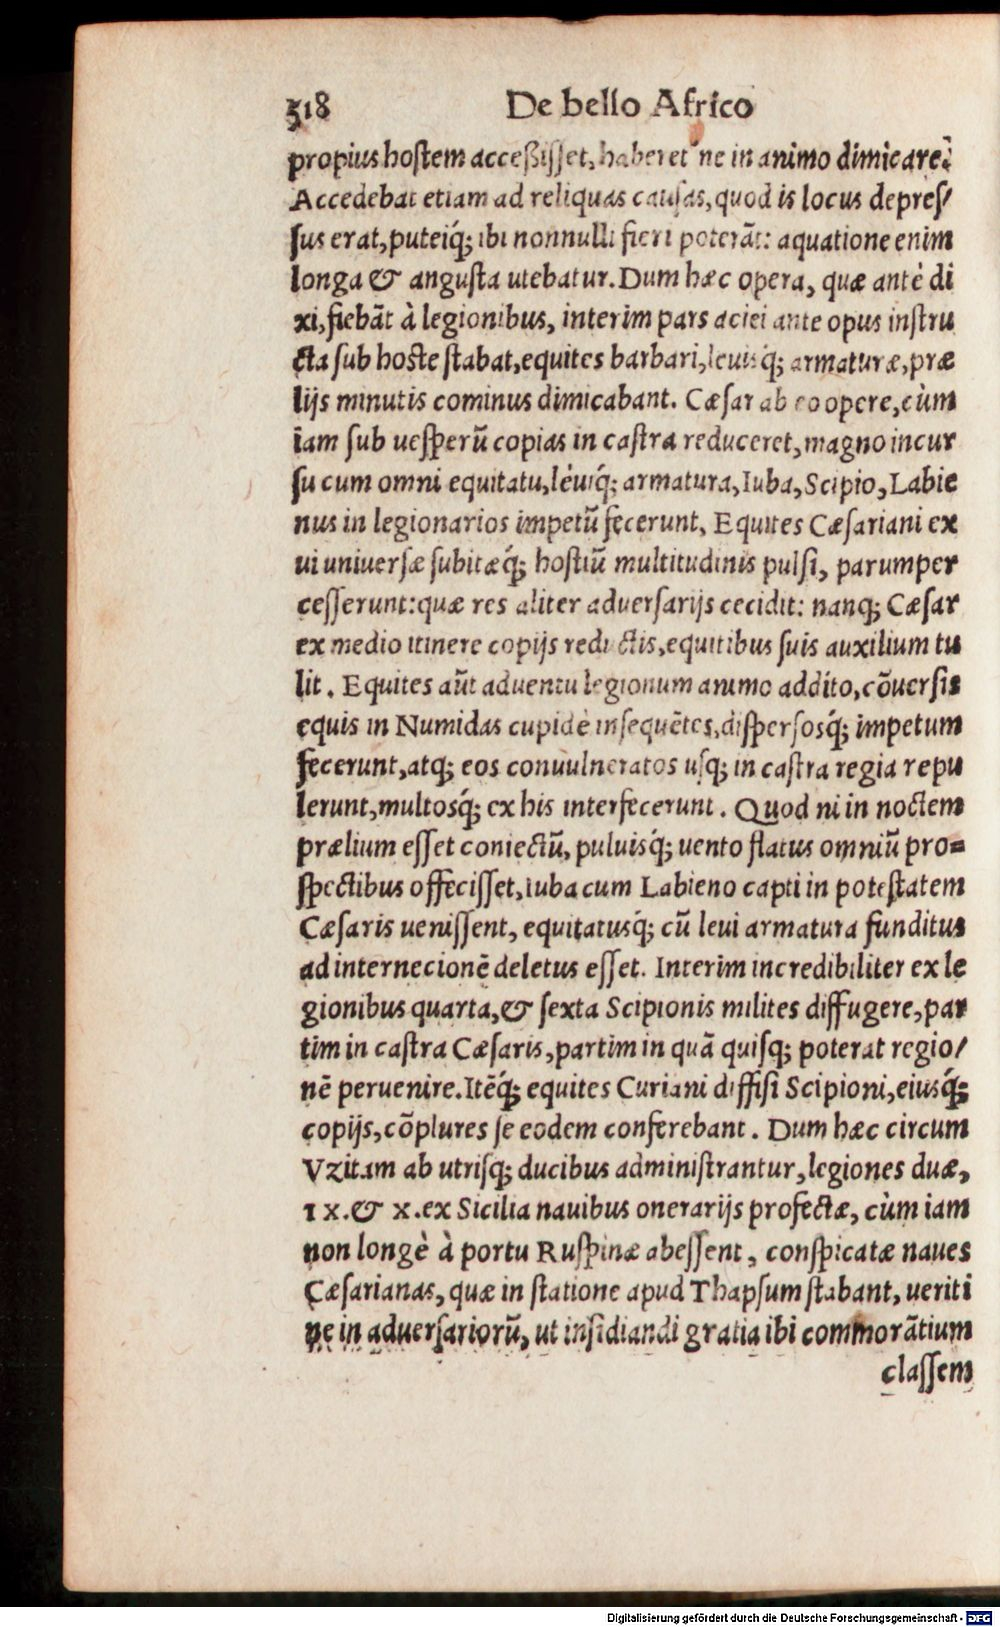 518 De bello Africo
propius hostem acceßiſſet, haberet ne in animo dimicare?
Accedebat etiam ad reliquas cauſas, quod is locus depreſ/
ſus erat, puteiq́; ibi nonnulli fieri poterãt: aquatione enim
longa & angusta utebatur. Dum hæc opera, quæ antè di
xi, fiebãt à legionibus, interim pars aciei ante opus instru
cta ſub hoste stabat, equites barbari, leuisq́; armaturæ, præ
lijs minutis cominus dimicabant. Cæſar ab eo opere, cùm
iam ſub ueſperũ copias in castra reduceret, magno incur
ſu cum omni equitatu, leuiq́; armatura, Iuba, Scipio, Labie
nus in legionarios impetũ fecerunt. Equites Cæſariani ex
ui uniuerſæ ſubitæq́; hostiũ multitudinis pulſi, parumper
ceſſerunt: quæ res aliter aduerſarijs cecidit: nanq; Cæſar
ex medio itinere copijs reductis, equitibus ſuis auxilium tu
lit. Equites aũt aduentu legionum animo addito, cõuerſis
equis in Numidas cupidè inſequẽtes, diſperſosq́; impetum
fecerunt, atq; eos conuulneratos uſq; in castra regia repu
lerunt, multosq́; ex his interfecerunt. Quod ni in noctem
prælium eſſet coniectũ, puluisq́; uento flatus omniũ pro=
ſpectibus offeciſſet, Iuba cum Labieno capti in potestatem
Cæſaris ueniſſent, equitatusq́; cũ leui armatura funditus
ad internecionẽ deletus eſſet. Interim incredibiliter ex le
gionibus quarta, & ſexta Scipionis milites diffugere, par
tim in castra Cæſaris, partim in quã quiſq; poterat regio/
nẽ peruenire. Itẽq́; equites Curiani diffiſi Scipioni, eiusq́;
copijs, cõplures ſe eodem conferebant. Dum hæc circum
Vzitam ab utriſq; ducibus administrantur, legiones duæ,
IX. & X. ex Sicilia nauibus onerarijs profectæ, cùm iam
non longè à portu Ruſpinæ abeſſent, conſpicatæ naues
Cæſarianas, quæ in statione apud Thapſum stabant, ueriti
ne in aduerſariorũ, ut inſidiandi gratia ibi commorãtium
claſſem
Digitalisierung gefördert durch die Deutsche Forschungsgemeinschaft - DFG